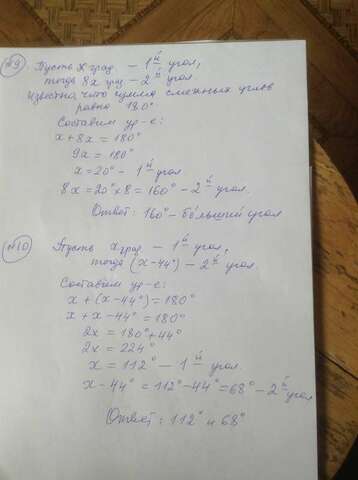 №9 Пусть x град – 1й угол,
тогда 8x гр – 2й угол
Известно, что сумма смежных углов
равно 180°
Составим ур-е:
x + 8x = 180°
9x = 180°
x = 20° – 1й угол
8x = 20° x 8 = 160° – 2й угол.
Ответ: 160° – больший угол
№10 Пусть x град – 1й угол,
тогда (x-44°) – 2й угол.
Составим ур-е:
x + (x-44°) = 180°
x + x - 44° = 180°
2x = 180° + 44°
2x = 224°
x = 112° – 1й угол.
x - 44° = 112° - 44° = 68° – 2й угол
Ответ: 112° и 68°